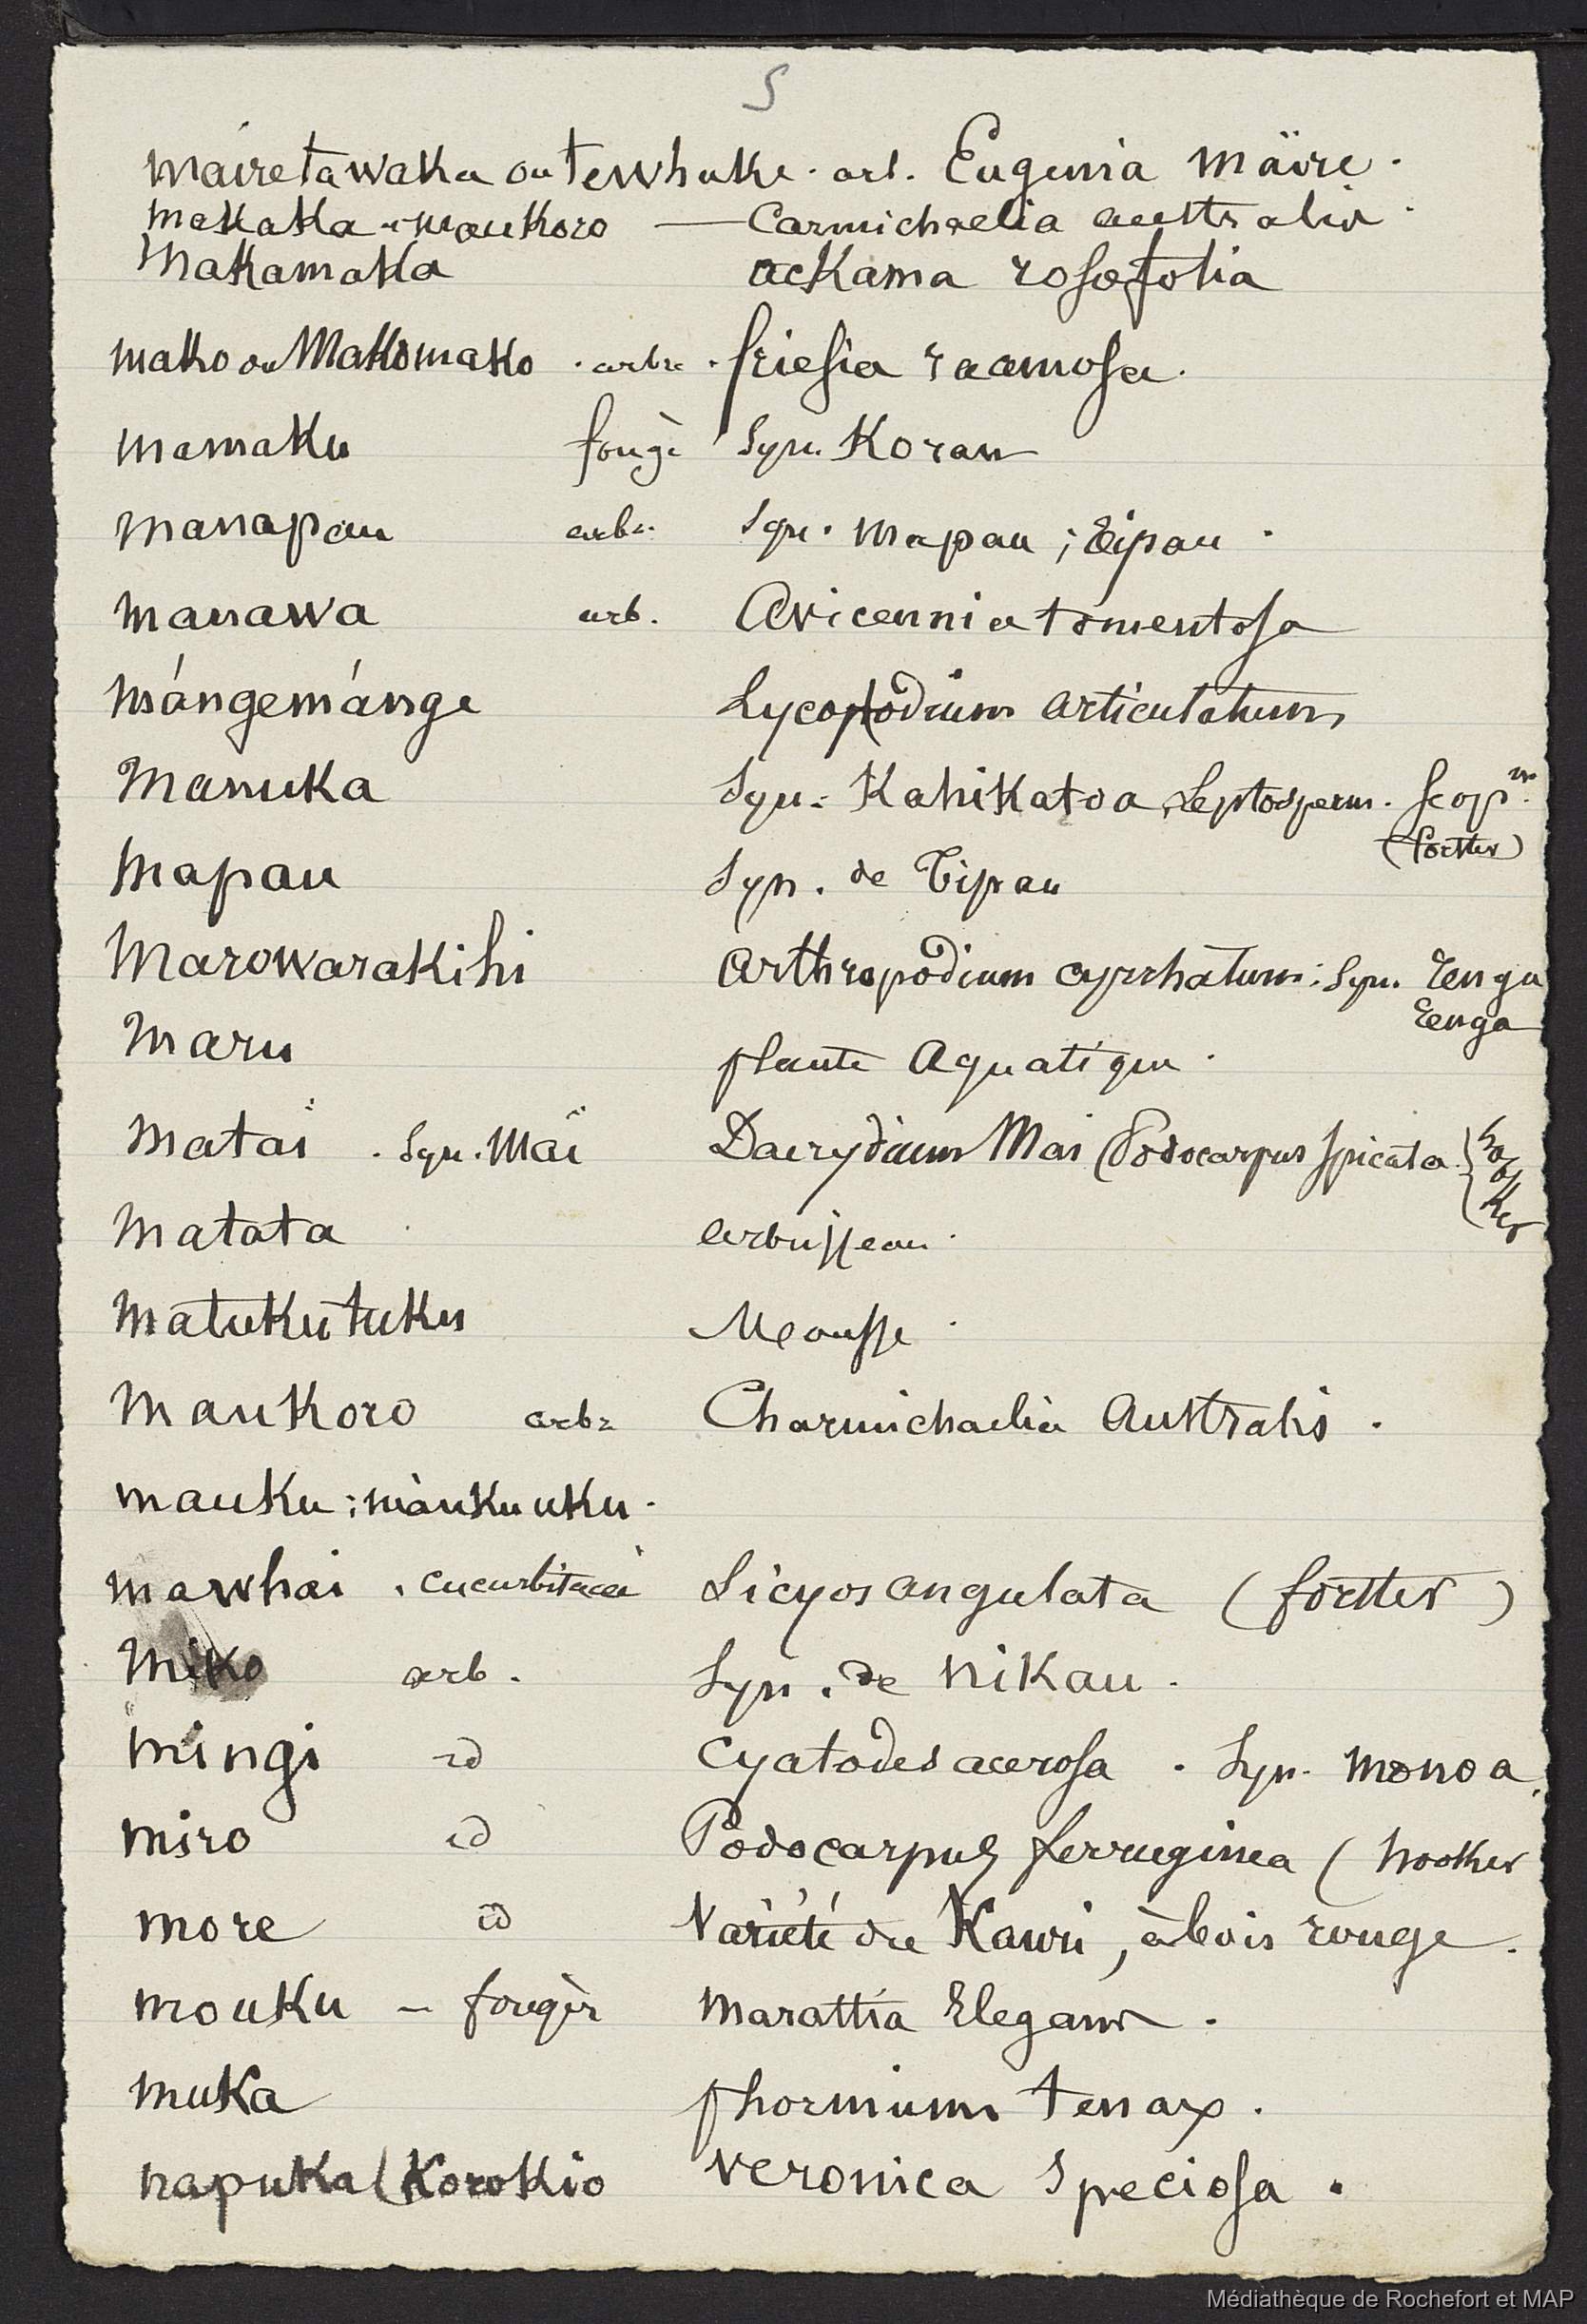 5
màiretawaka ou tewhuke. arb. Eugenia màïre.
makaka - maukoro — Carmichaelia australis.
Makamaka ackama rosæfolia
mako ou Makomako. arbre. friesia racemosa.
mamaku fougè Syn. Korau
manapau arbr. Syn. mapau; Tipau.
manawa arb. Avicennia tomentosa
mángemánge Lycopodium articulatum
Manuka Syn. Kahikatoa, Leptosperm. Scop.m
(forster)
Mapau Syn. de Tipau
Marowarakihi Arthropodium cyrrhatum; Syn. renga
renga
Maru plante Aquatique.
Mataï. Syn. Maï Dacrydium Mai (Podocarpus spicata. Hooker
Matata arbrisseau.
Matukutuku Mousse.
Maukoro arbr Charmichaelia Australis.
mauku; màukuuku.
mawhai. cucurbitacé Sicyos angulata (forster)
Miko arb. Syn. de nikau.
mingi id Cyatodes acerosa. Syn. monoa.
miro id Podocarpus ferruginea (hooker
more id Variété du Kawri, à bois rouge.
mouku — fougèr Marattia Elegans.
muka phormium tenax.
napuka (Korokio Veronica Speciosa.
Médiathèque de Rochefort et MAP